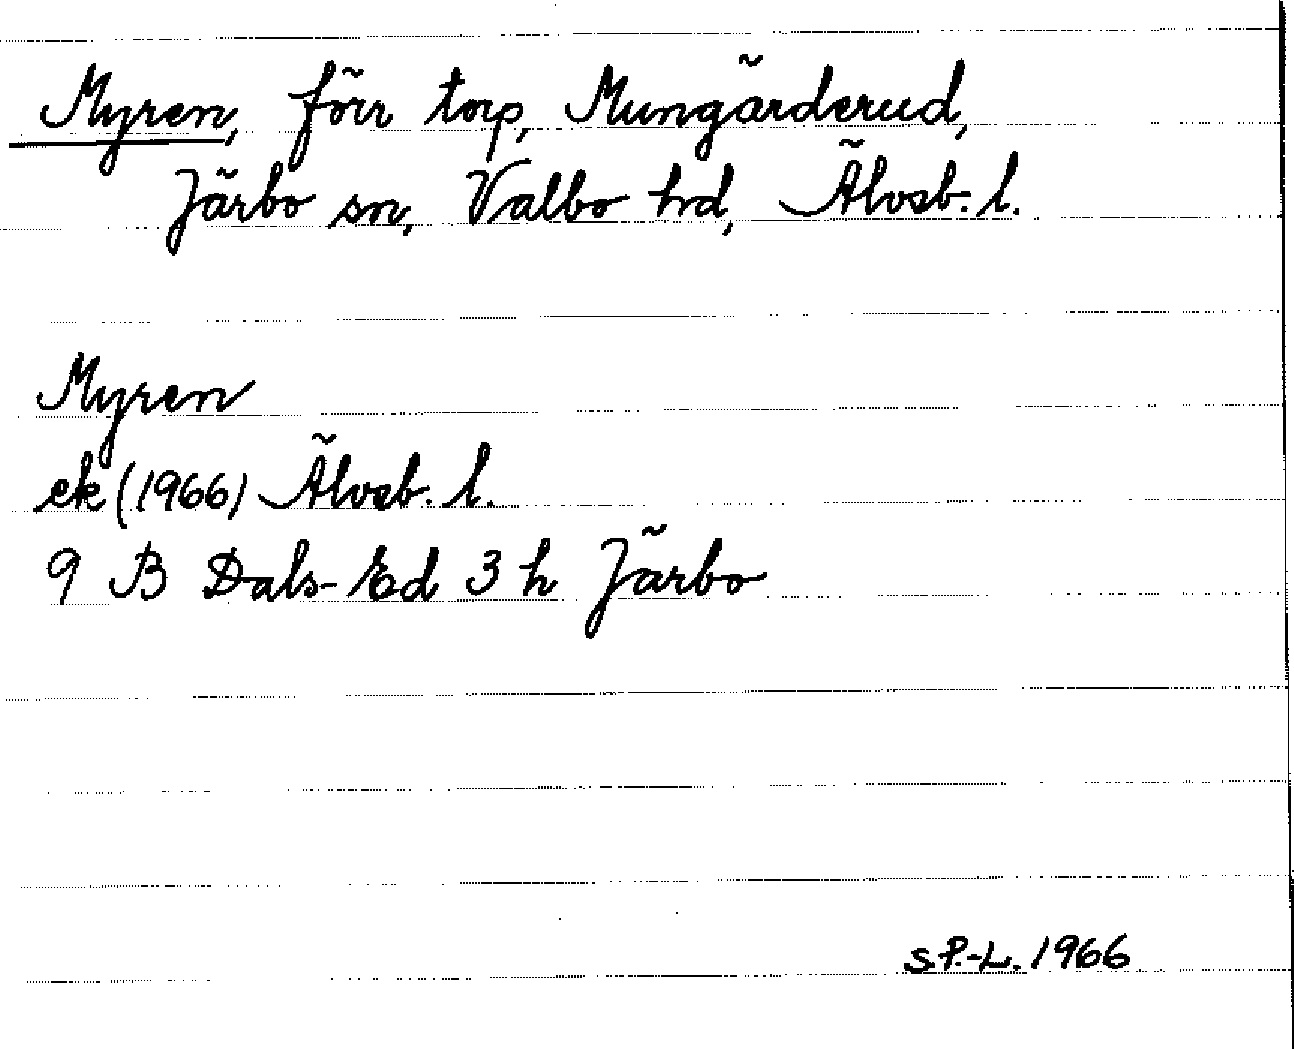 Myren, förr torp, Mungärderud,
Järbo sn, Valbo hrd, Älvsb. l.
Myren
ek (1966) Älvsb. l.
9 B Dals-Ed 3 h Järbo
S.P.-L. 1966